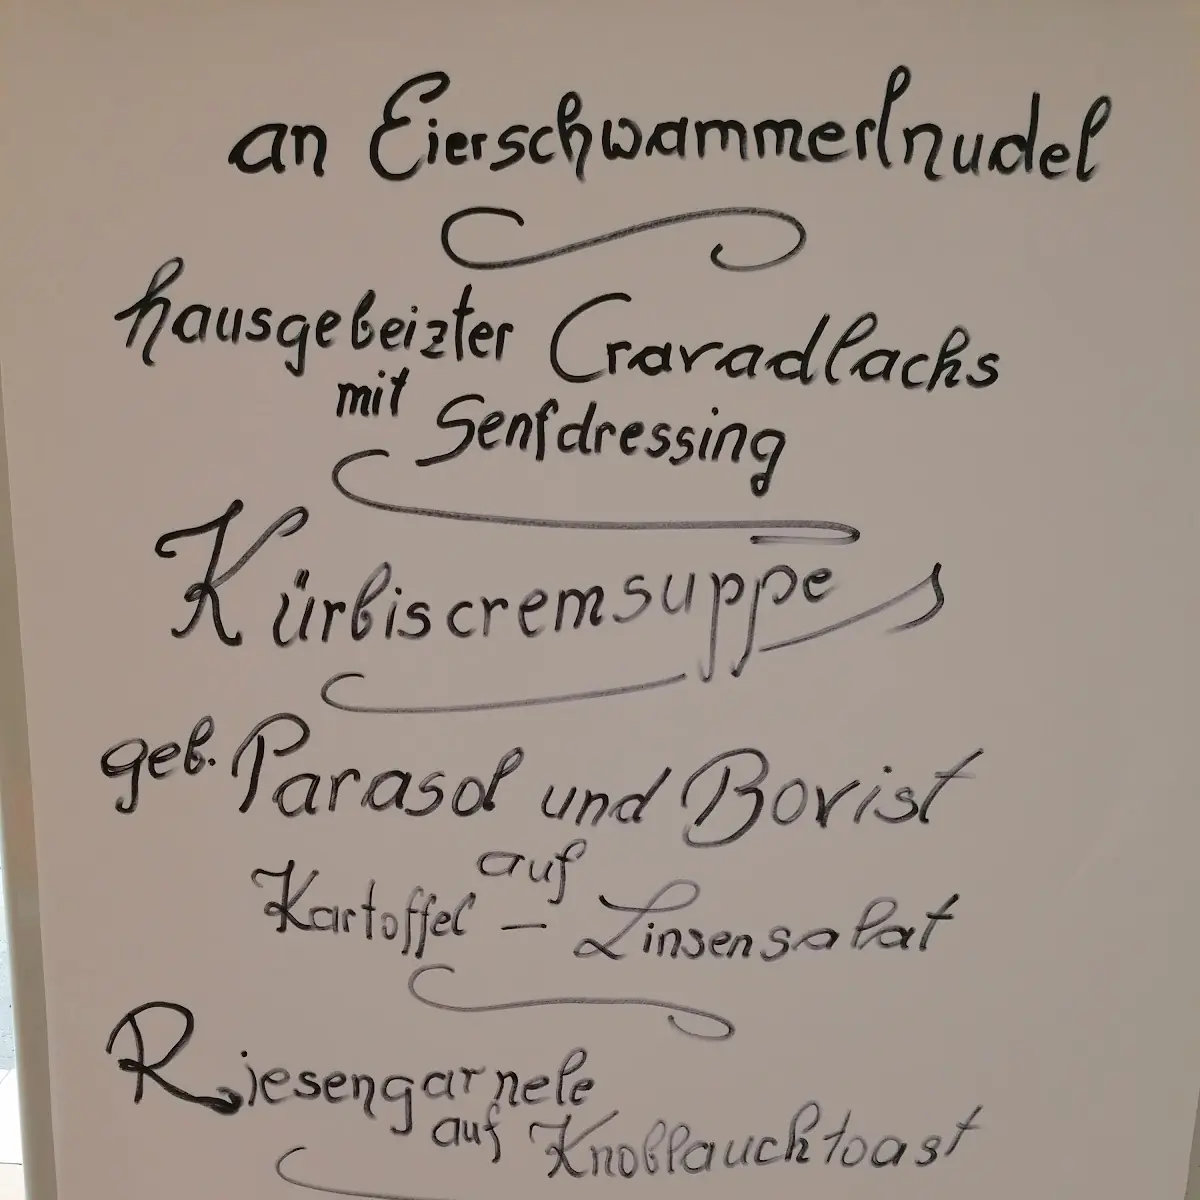 an Eierschwammerlnudel
hausgebeizter Cravadlachs
mit Senfdressing
Kürbiscremsuppe
geb. Parasol und Bovist
auf
Kartoffel - Linsensalat
Riesengarnele
auf Knoblauchtoast